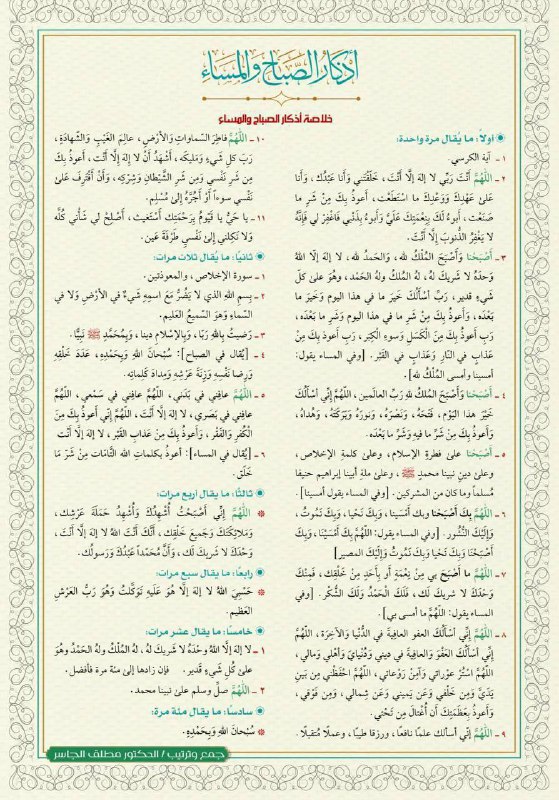 أذكار الصباح والمساء
خلاصة أذكار الصباح والمساء
أولاً: ما يُقال مرة واحدة:
١ - آية الكرسي
٢ - اللَّهُمَّ أَنْتَ رَبِّي لا إلهَ إلَّا أَنْتَ، خَلَقْتَني وَأَنا عَبْدُكَ، وَأَنا
عَلى عَهْدِكَ وَوَعْدِكَ ما اسْتَطَعْت، أَعوذُ بِكَ مِنْ شَرِ ما
صَنَعْت، أَبوءُ لَكَ بِنِعْمَتِكَ عَلَيَّ وَأَبوءُ بذَنْبي فَاغْفِرْ لي فَإِنَّهُ
لا يَغْفِرُ الذُّنوبَ إِلَّا أَنْتَ.
٣ - أَصْبَحْنا وَأَصْبَحَ المُلْكُ لله، وَالحَمدُ لله، لا إلهَ إلَّا اللهُ
وَحدَهُ لا شَريكَ لهُ، لهُ المُلكُ ولهُ الحَمْد، وهُوَ على كلّ
شَيءٍ قدير، رَبِّ أسْألُكَ خَيرَ ما في هذا اليوم وَخَيرَ ما
بَعْدَه، وَأَعوذُ بِكَ مِنْ شَرِ ما في هذا اليوم وَشَرِ ما بَعْدَه،
رَبِّ أَعوذُ بِكَ مِنَ الْكَسَلِ وَسوءِ الْكِبَر، رَبِّ أعوذُ بكَ مِنْ
عَذابٍ في النّارِ وَعَذابٍ في القَبْر. [وفي المساء يقول:
أمسينا وأمسى المُلْكُ لله].
٤ - أَصْبَحْنا وَأَصْبَحَ المُلكُ للهِ رَبِّ العالمين، اللَّهُمَّ إِنِّي أسْألُكَ
خَيْرَ هذا اليَوْم، فَتْحَهُ، وَنَصْرَهُ، وَنورَهُ وَبَرَكَتَهُ، وَهُداهُ،
وَأَعوذُ بِكَ مِنْ شَرِّ ما فيهِ وَشَرِّ ما بَعْدَه.
٥ - أَصْبَحْنا على فطرةِ الإسلام، وعلى كلمةِ الإخلاص،
وعلى دينِ نبينا محمدٍ ﷺ، وعلى ملةِ أبينا إبراهيم حنيفا
مُسلماً وما كان من المشركين. [وفي المساء يقول أمسينا].
٦ - اللَّهُمَّ بِكَ أَصْبَحْنا وبك أمْسَينا، وبكَ نَحْيا، وبِكَ نَمُوتُ،
وَإِلَيْكَ النُّشُور. [وفي المساء يقول: اللَّهُمَّ بِكَ أمْسَيْنا، وَبِكَ
أَصْبَحْنَا وَبِكَ نَحيا وَبِكَ نَمُوتُ وَإِلَيْكَ المصير]
٧ - اللَّهُمَّ ما أَصْبَحَ بي مِنْ نِعْمَةٍ أو بِأَحَدٍ مِنْ خَلْقِك، فَمِنْكَ
وَحْدَكَ لا شريكَ لَك، فَلَكَ الْحَمْدُ وَلَكَ الشُّكْر. [وفي
المساء يقول: اللَّهُمَّ ما أمسى بي].
٨ - اللَّهُمَّ إِنِّي أسْألُكَ العفو العافِيةَ في الدُّنْيا وَالآخِرَة، اللَّهُمَّ
إِنِّي أسْألُكَ العَفْوَ وَالعافِيةَ في ديني وَدُنْيايَ وَأهْلي وَمالي،
اللَّهُمَّ اسْتُرْ عوْراتي وَآمِنْ رَوْعاتي، اللَّهُمَّ احْفَظْني مِن بَينِ
يَدَيَّ وَمِن خَلْفي وَعَن يَميني وَعَن شِمالي، وَمِن فَوْقي،
وَأَعوذُ بِعَظَمَتِكَ أَن أُغْتالَ مِن تَحْتي.
٩ - اللَّهُمَّ إِنِّي أسألك علمًا نافعًا، ورزقا طيبا، وعملًا مُتقبلًا.
١٠ - اللَّهُمَّ فاطِرَ السّماواتِ وَالأرْضِ، عالِمَ الغَيْبِ وَالشَّهادَةِ،
رَبَّ كلِ شَيءٍ وَمَليكَه، أشْهَدُ أَنْ لا إِلهَ إِلَّا أَنْت، أَعوذُ بِكَ
مِن شَرِ نَفْسي وَمِن شَرِ الشَّيْطانِ وَشِركِه، وَأَنْ أقْتَرِفَ عَلى
نَفْسي سوءاً أَوْ أَجُرَّهُ إِلى مُسْلِم.
١١ - يا حَيُّ يا قَيُّومُ بِرَحْمَتِكَ أَسْتَغِيث، أَصْلِحْ لي شَأني كُلَّهُ
وَلَا تَكِلني إلىٰ نَفْسي طَرْفَةَ عَين.
ثانيًا: ما يُقال ثلاث مرات:
١ - سورة الإخلاص، والمعوذتين.
٢ - بِسمِ اللهِ الذي لا يَضُرُّ مَعَ اسمِهِ شَيءٌ في الأرْضِ وَلا في
السّماءِ وَهوَ السّميعُ العَليم.
٣ - رَضيتُ باللهِ رَبًا، وَبِالإسْلامِ دينا، وبِمُحَمَّدٍ ﷺ نَبيًّا.
٤ - [يُقال في الصباح]: سُبْحانَ اللهِ وَبِحَمْدِهِ، عَدَدَ خَلْقِهِ
وَرِضا نَفْسِهِ وَزِنَةَ عَرْشِهِ وَمِدادَ كَلِماتِه.
٥ - اللَّهُمَّ عافِني في بَدَني، اللَّهُمَّ عافِني في سَمْعي، اللَّهُمَّ
عافِني في بَصَري، لا إلهَ إلَّا أَنْتَ، اللَّهُمَّ إِنِّي أَعوذُ بِكَ مِنَ
الْكُفْرِ وَالْفَقْر، وَأَعوذُ بِكَ مِنْ عَذابِ القَبْر، لا إلهَ إلَّا أَنْتَ
٦ - [يُقال في المساء]: أعوذُ بكلماتِ اللهِ التَّامَّات مِنْ شَرِّ مَا
خَلَق.
ثالثًا: ما يقال أربع مرات:
❊ اللَّهُمَّ إِنِّي أَصْبَحْتُ أُشْهِدُكَ وَأُشْهِدُ حَمَلَةَ عَرْشِكَ،
وَمَلائِكَتَكَ وَجَميعَ خَلْقِك، أنَّكَ أَنْتَ اللهُ لا إلهَ إلَّا أَنْتَ،
وَحْدَكَ لا شَريكَ لَك، وَأَنَّ مُحَمَداً عَبْدُكَ وَرَسولُك.
رابعًا: ما يقال سبع مرات:
❊ حَسْبِيَ اللهُ لا إلهَ إلَّا هُوَ عَلَيهِ تَوَكَّلتُ وَهُوَ رَبُّ العَرْشِ
العَظيم.
خامسًا: ما يقال عشر مرات:
١ - لا إلهَ إلَّا اللهُ وحْدَهُ لا شَريكَ لهُ، لهُ المُلْكُ ولهُ الحَمْدُ وهُوَ
عَلىٰ كُلِّ شَيْءٍ قَدير. فإن زادها إلى مئة مرة فأفضل.
٢ - اللَّهُمَّ صلِّ وسلم على نبينا محمد.
سادسًا: ما يقال مئة مرة:
❊ سُبْحانَ اللهِ وَبِحَمْدِهِ.
جمع وترتيب / الدكتور مطلق الجاسر